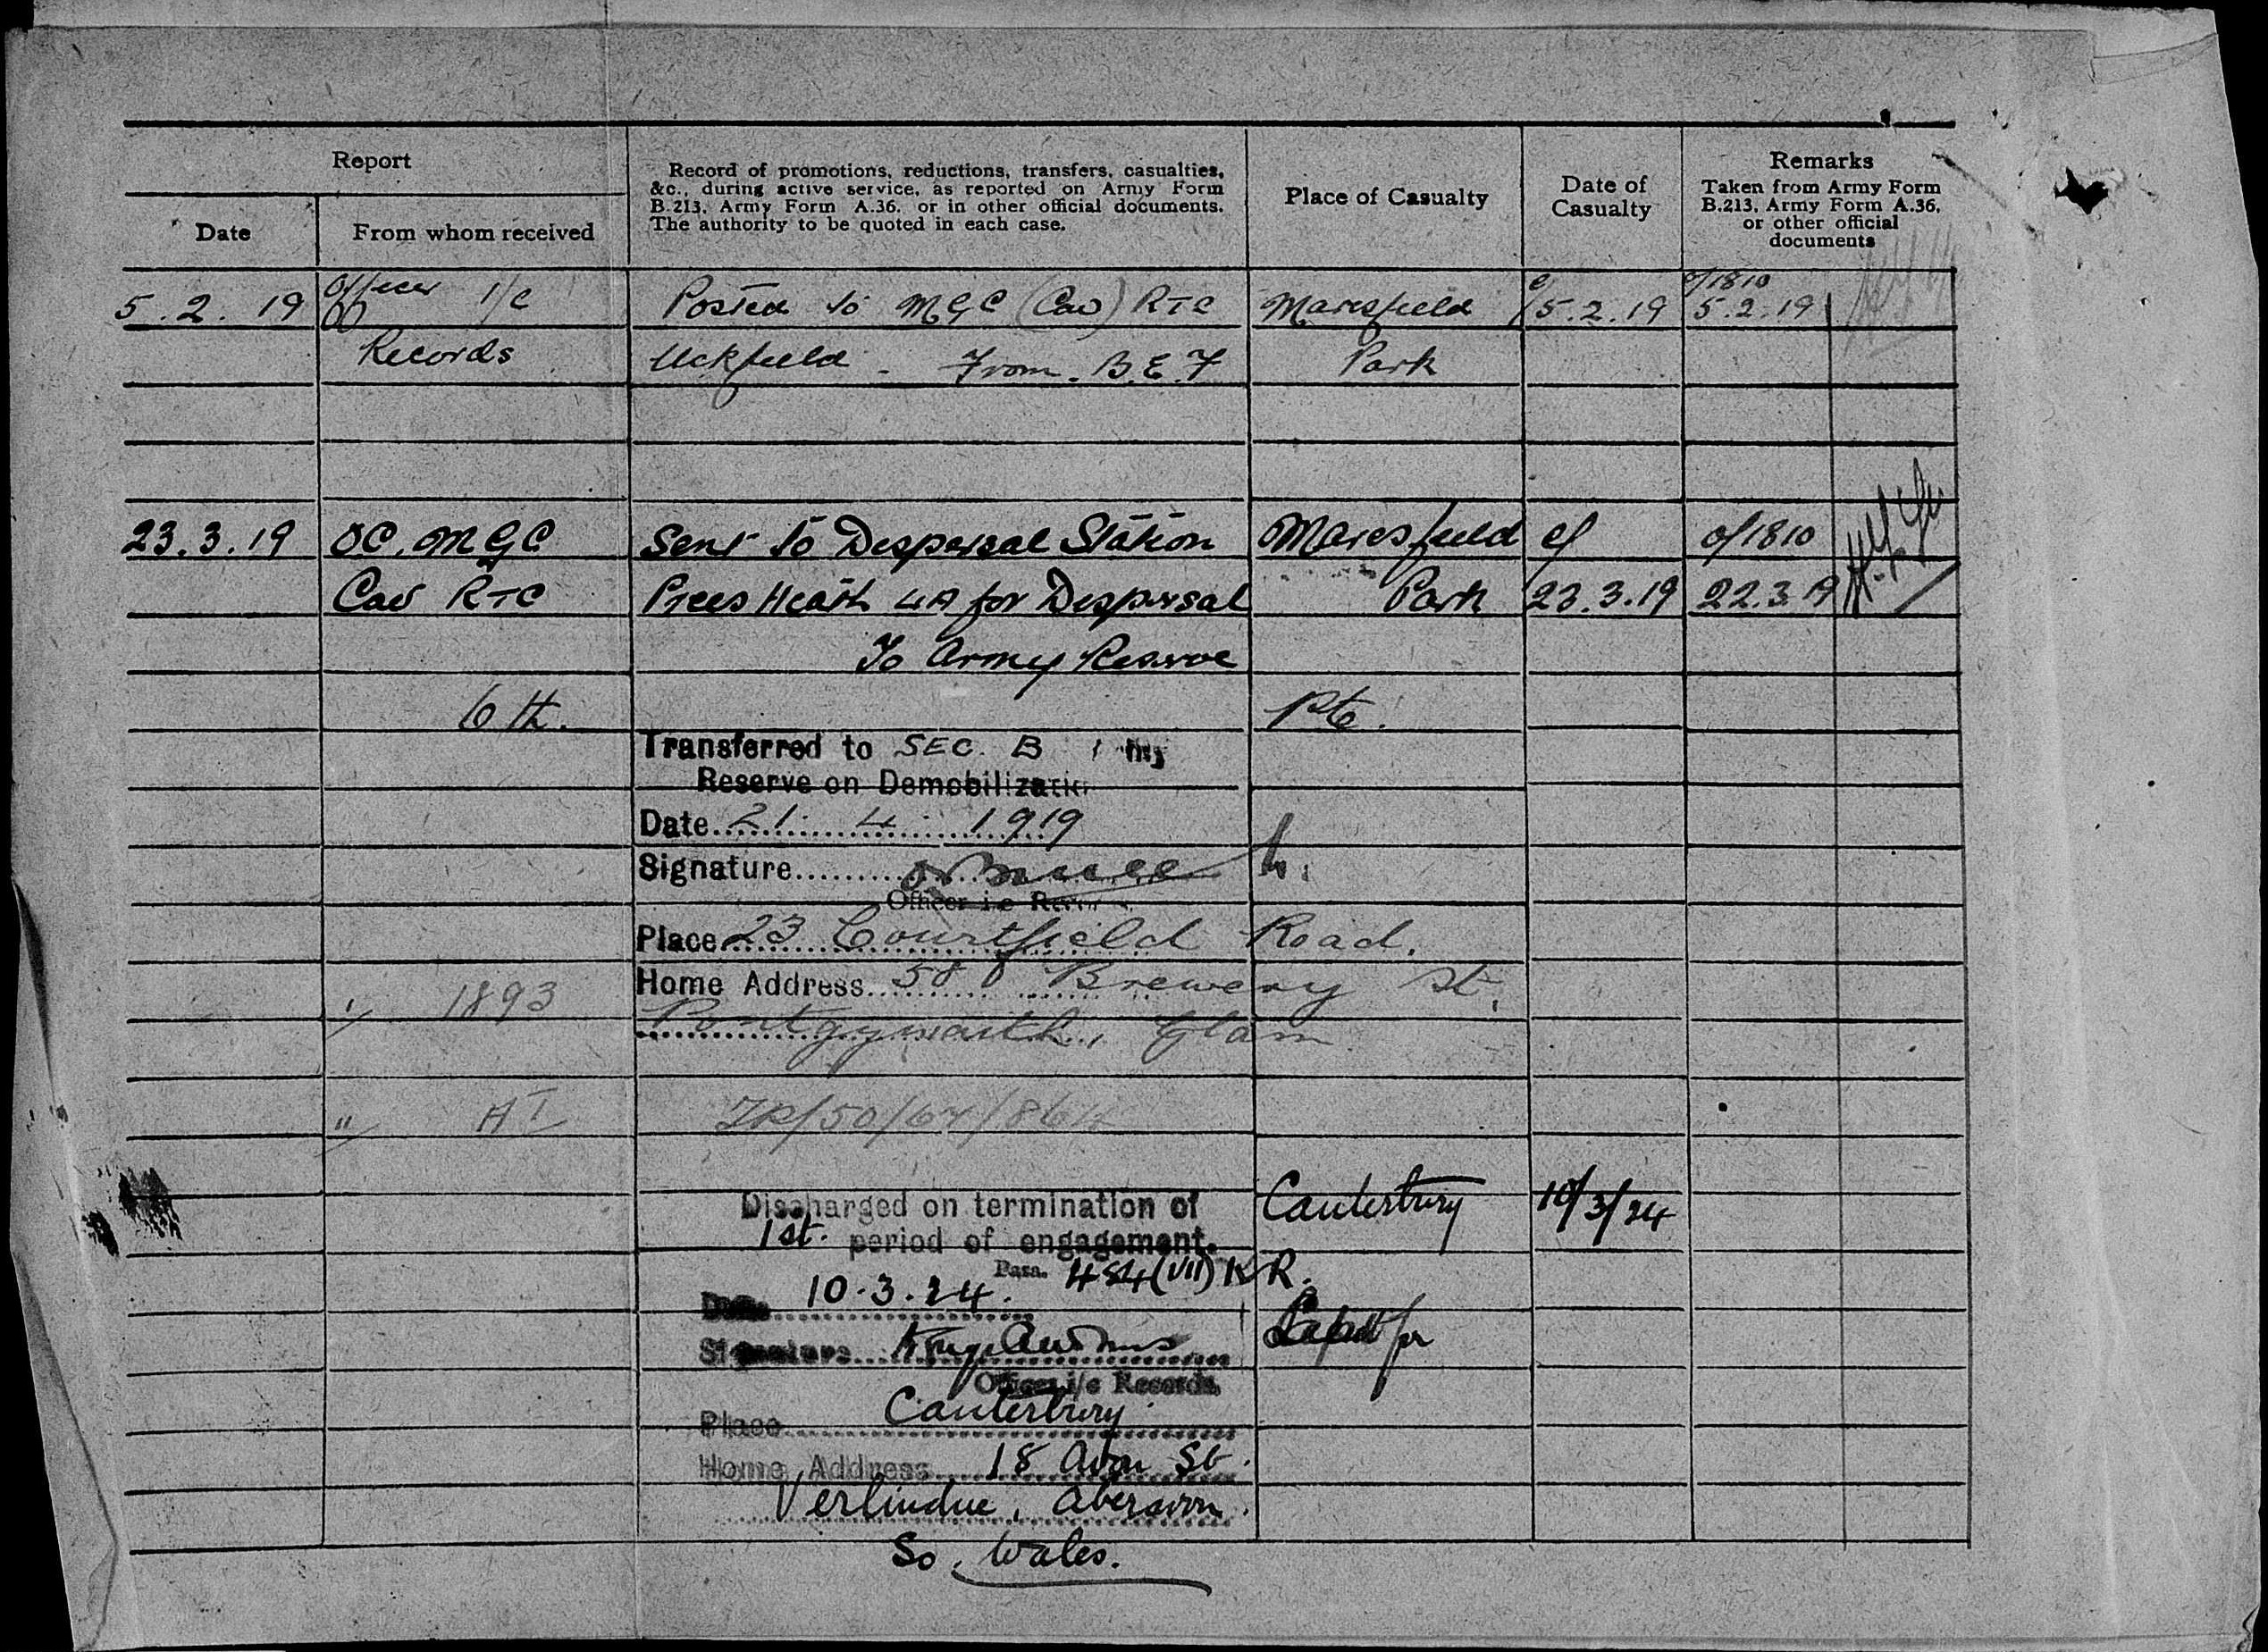 Report
Record of promotions, reductions, transfers, casualties,
&c., during active service, as reported on Army Form
B.213, Army Form A.36, or in other official documents.
The authority to be quoted in each case.
Place of Casualty
Date of
Casualty
Remarks
Taken from Army Form
B.213, Army Form A.36,
or other official
documents
Date
From whom received
5.2.19 Officer I/C Posted to MGC (Cav) RTC Maresfield 5.2.19 5.2.19
Records Uckfield - From B.E.F Park
23.3.19 OC. MGC Sent to Dispersal Station Maresfield of/1810
Cav RTC Prees Heath 4A for Dispersal Park 23.3.19 22.3.19
To Army Reserve
6th. Pte.
Transferred to SEC. B
Reserve on Demobilizati
Date 21. 4. 1919
Signature
Officer i/c
Place 23 Courtfield Road.
Home Address 58 Brewery St.
" 1893 Pontygwaith, Glam
" A I ZR/50/67/864
Discharged on termination of Canterbury 10/3/24
1st. period of engagement.
Para. 484 (VII) KR.
Date 10.3.24.
Signature
Officer i/c Records.
Place Canterbury
Home Address 18 Avon St.
Aberavon.
So. Wales.